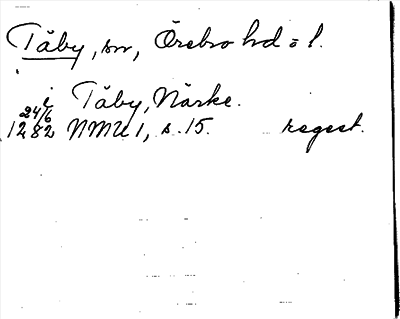 Täby, sn, Örebro hd o l.
i Täby, Närke.
24/6
1282 NMU 1, s. 15. regest.